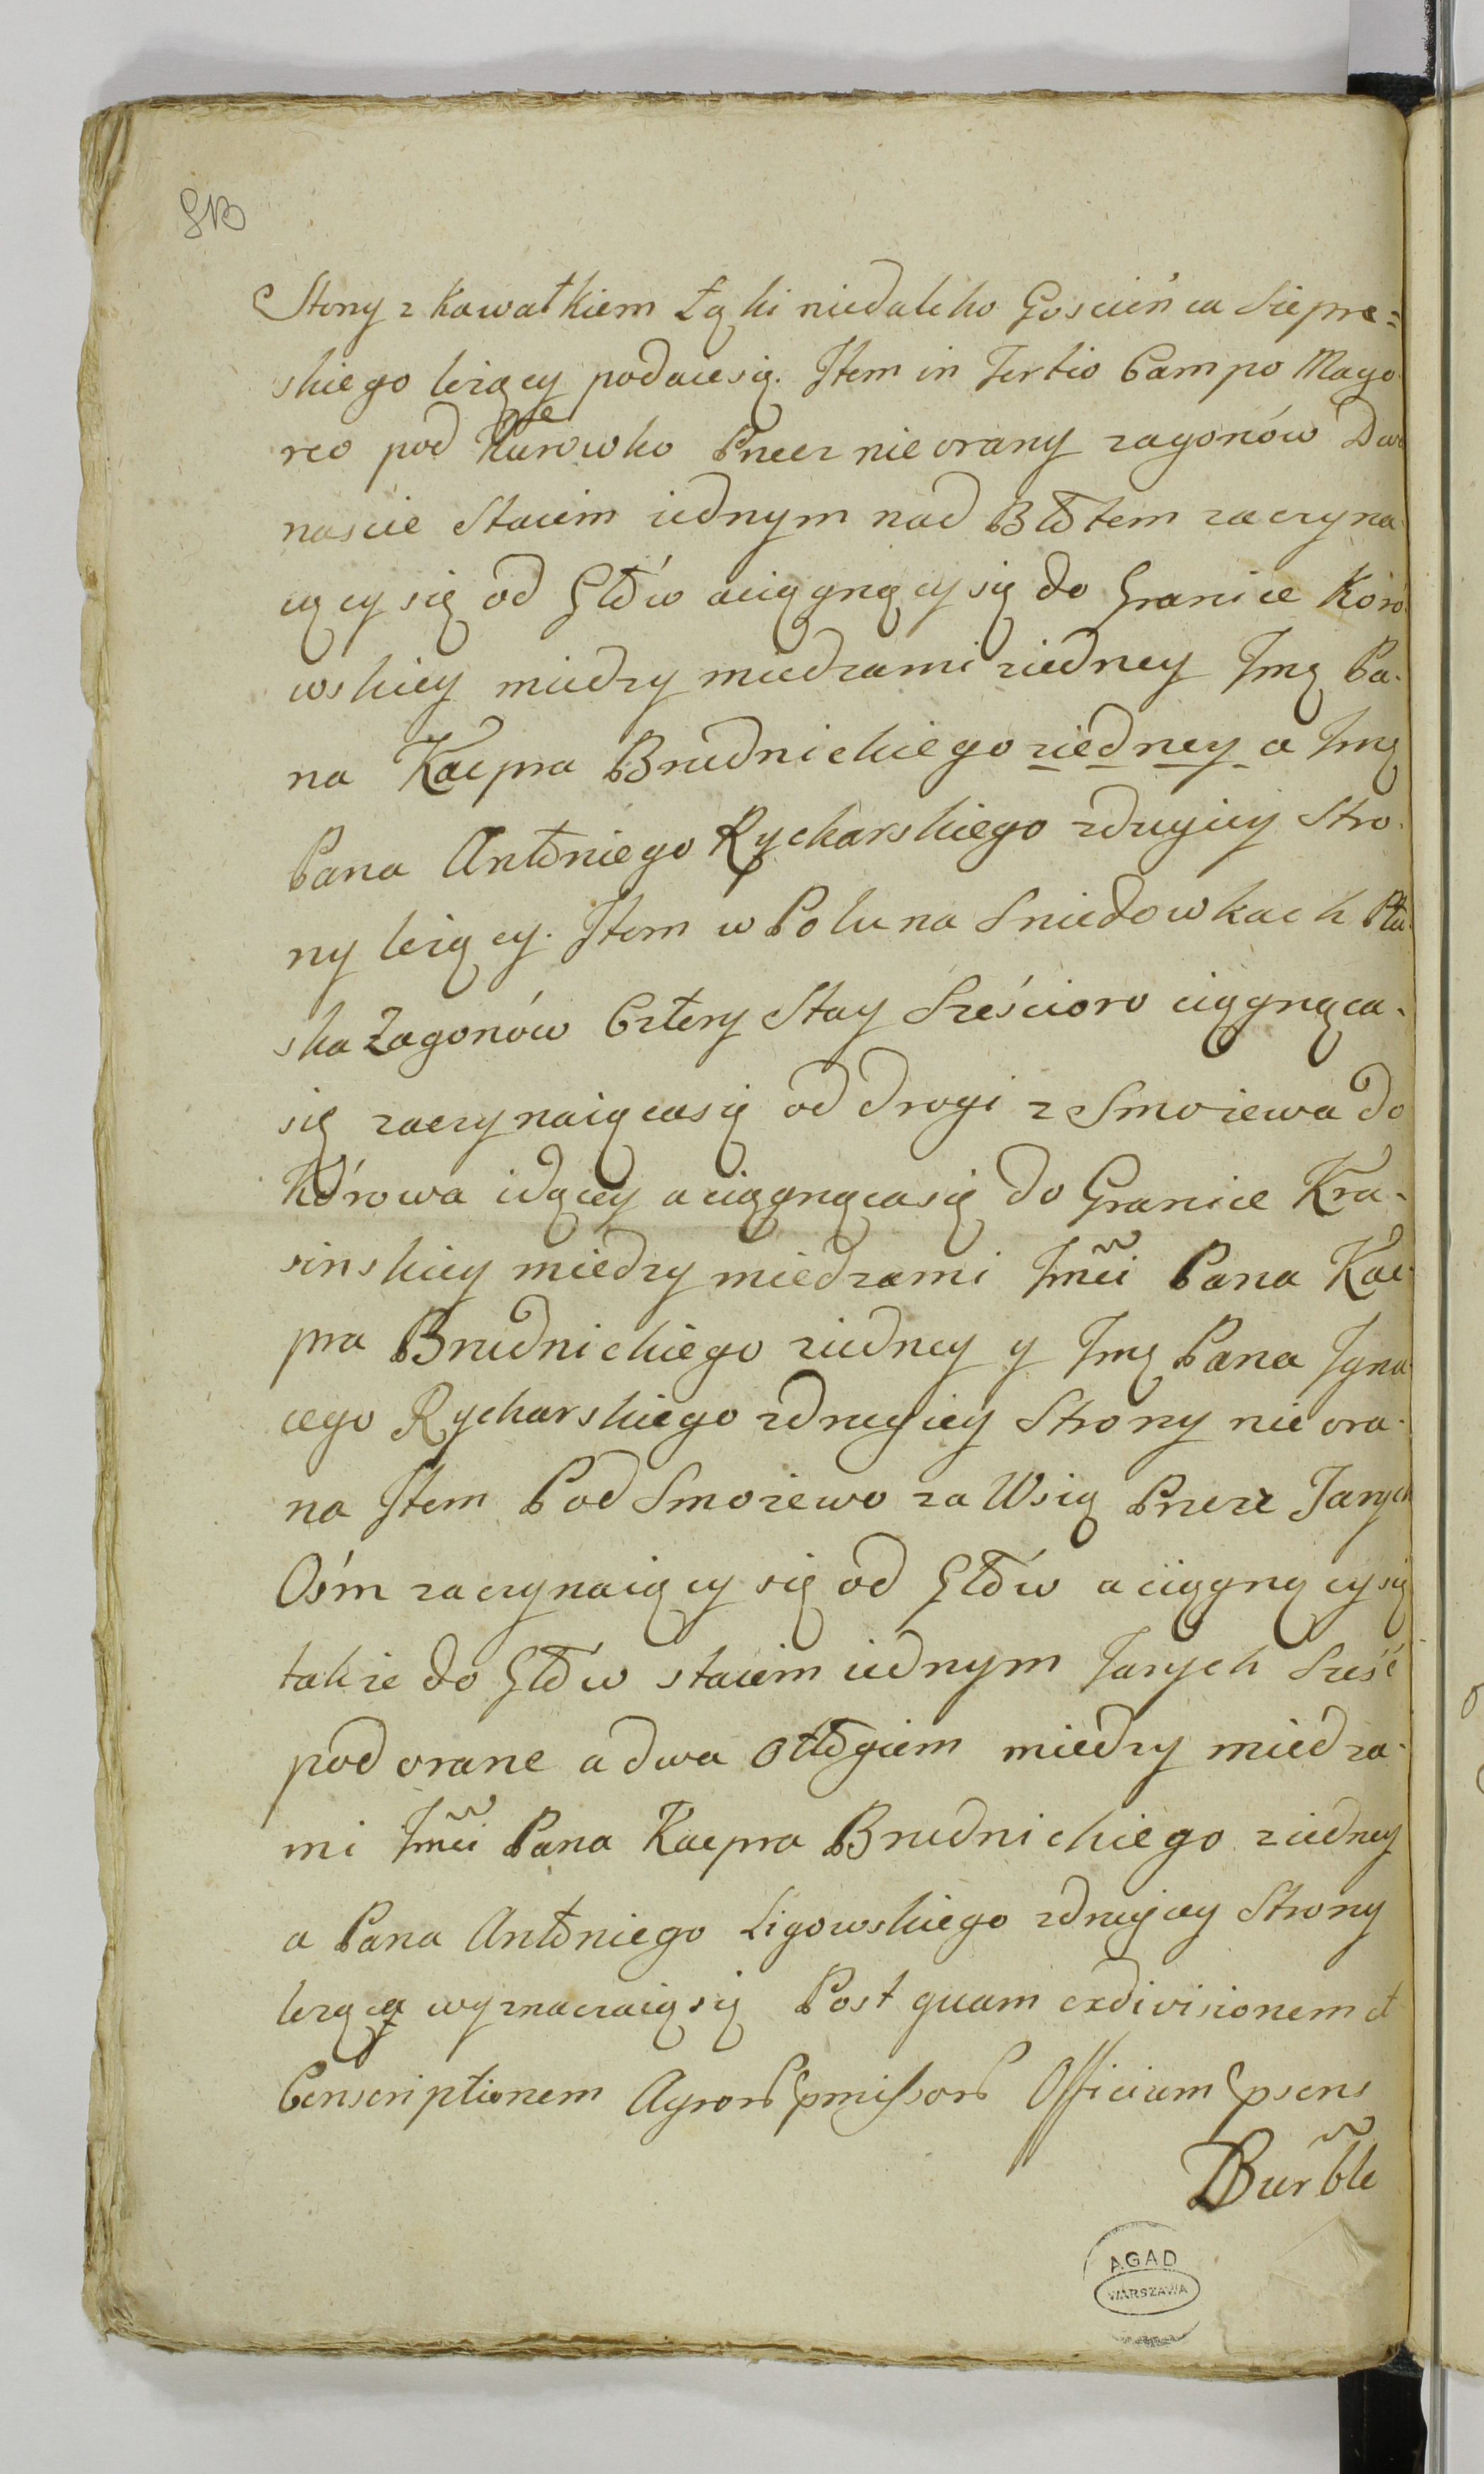 Strony z Kawałkiem Łąki niedaleko Goscieńca Sieprs=
skiego leżący podaiesię. Item in Tertio Campo Mago
rco pod Kurowko Przecz nieorany zagonów Dwa
nascie Staiem iednym nad Błotem zaczyna
iący się od Głów aciągnący się do Granice Koro
wskiey miedzy miedzami ziedney Jmę Pa-
na Kacpra Brudnickiego ziedney a Jmę
Pana Antoniego Rycharskiego zdrugiey Stro-
ny leżący. Item w Polu na Sniedowkach Pła
ska Zagonów Cztery Stay Sześcioro ciągnąca-
się zaczynaiącasię od drogi z Smoiewa do
Kórowa idącey aciągnącasię do Granice Kra-
sinskiey miedzy miedzami Jmci Pana Kac-
pra Brudnickiego ziedney y Jmę Pana Igna
cego Rycharskiego zdrugiey Strony nie ora-
na Item Pod Smoiewo za Wsią Przecz Jarych
Ośm zaczynaiący się od Głów aciągnący się
takze do Głów staiem iednym Jarych Sześć
pod orane a dwa Odłogiem miedzy miedza-
mi Jmci Pana Kacpra Brudnickiego ziedney
a Pana Antoniego Ligowskiego zdrugiey Strony
leżące wyznaczaią się Post quam exdivisionem et
Conscriptionem Agror pmissor Officium psens
Burble
AGAD
WARSZAWA